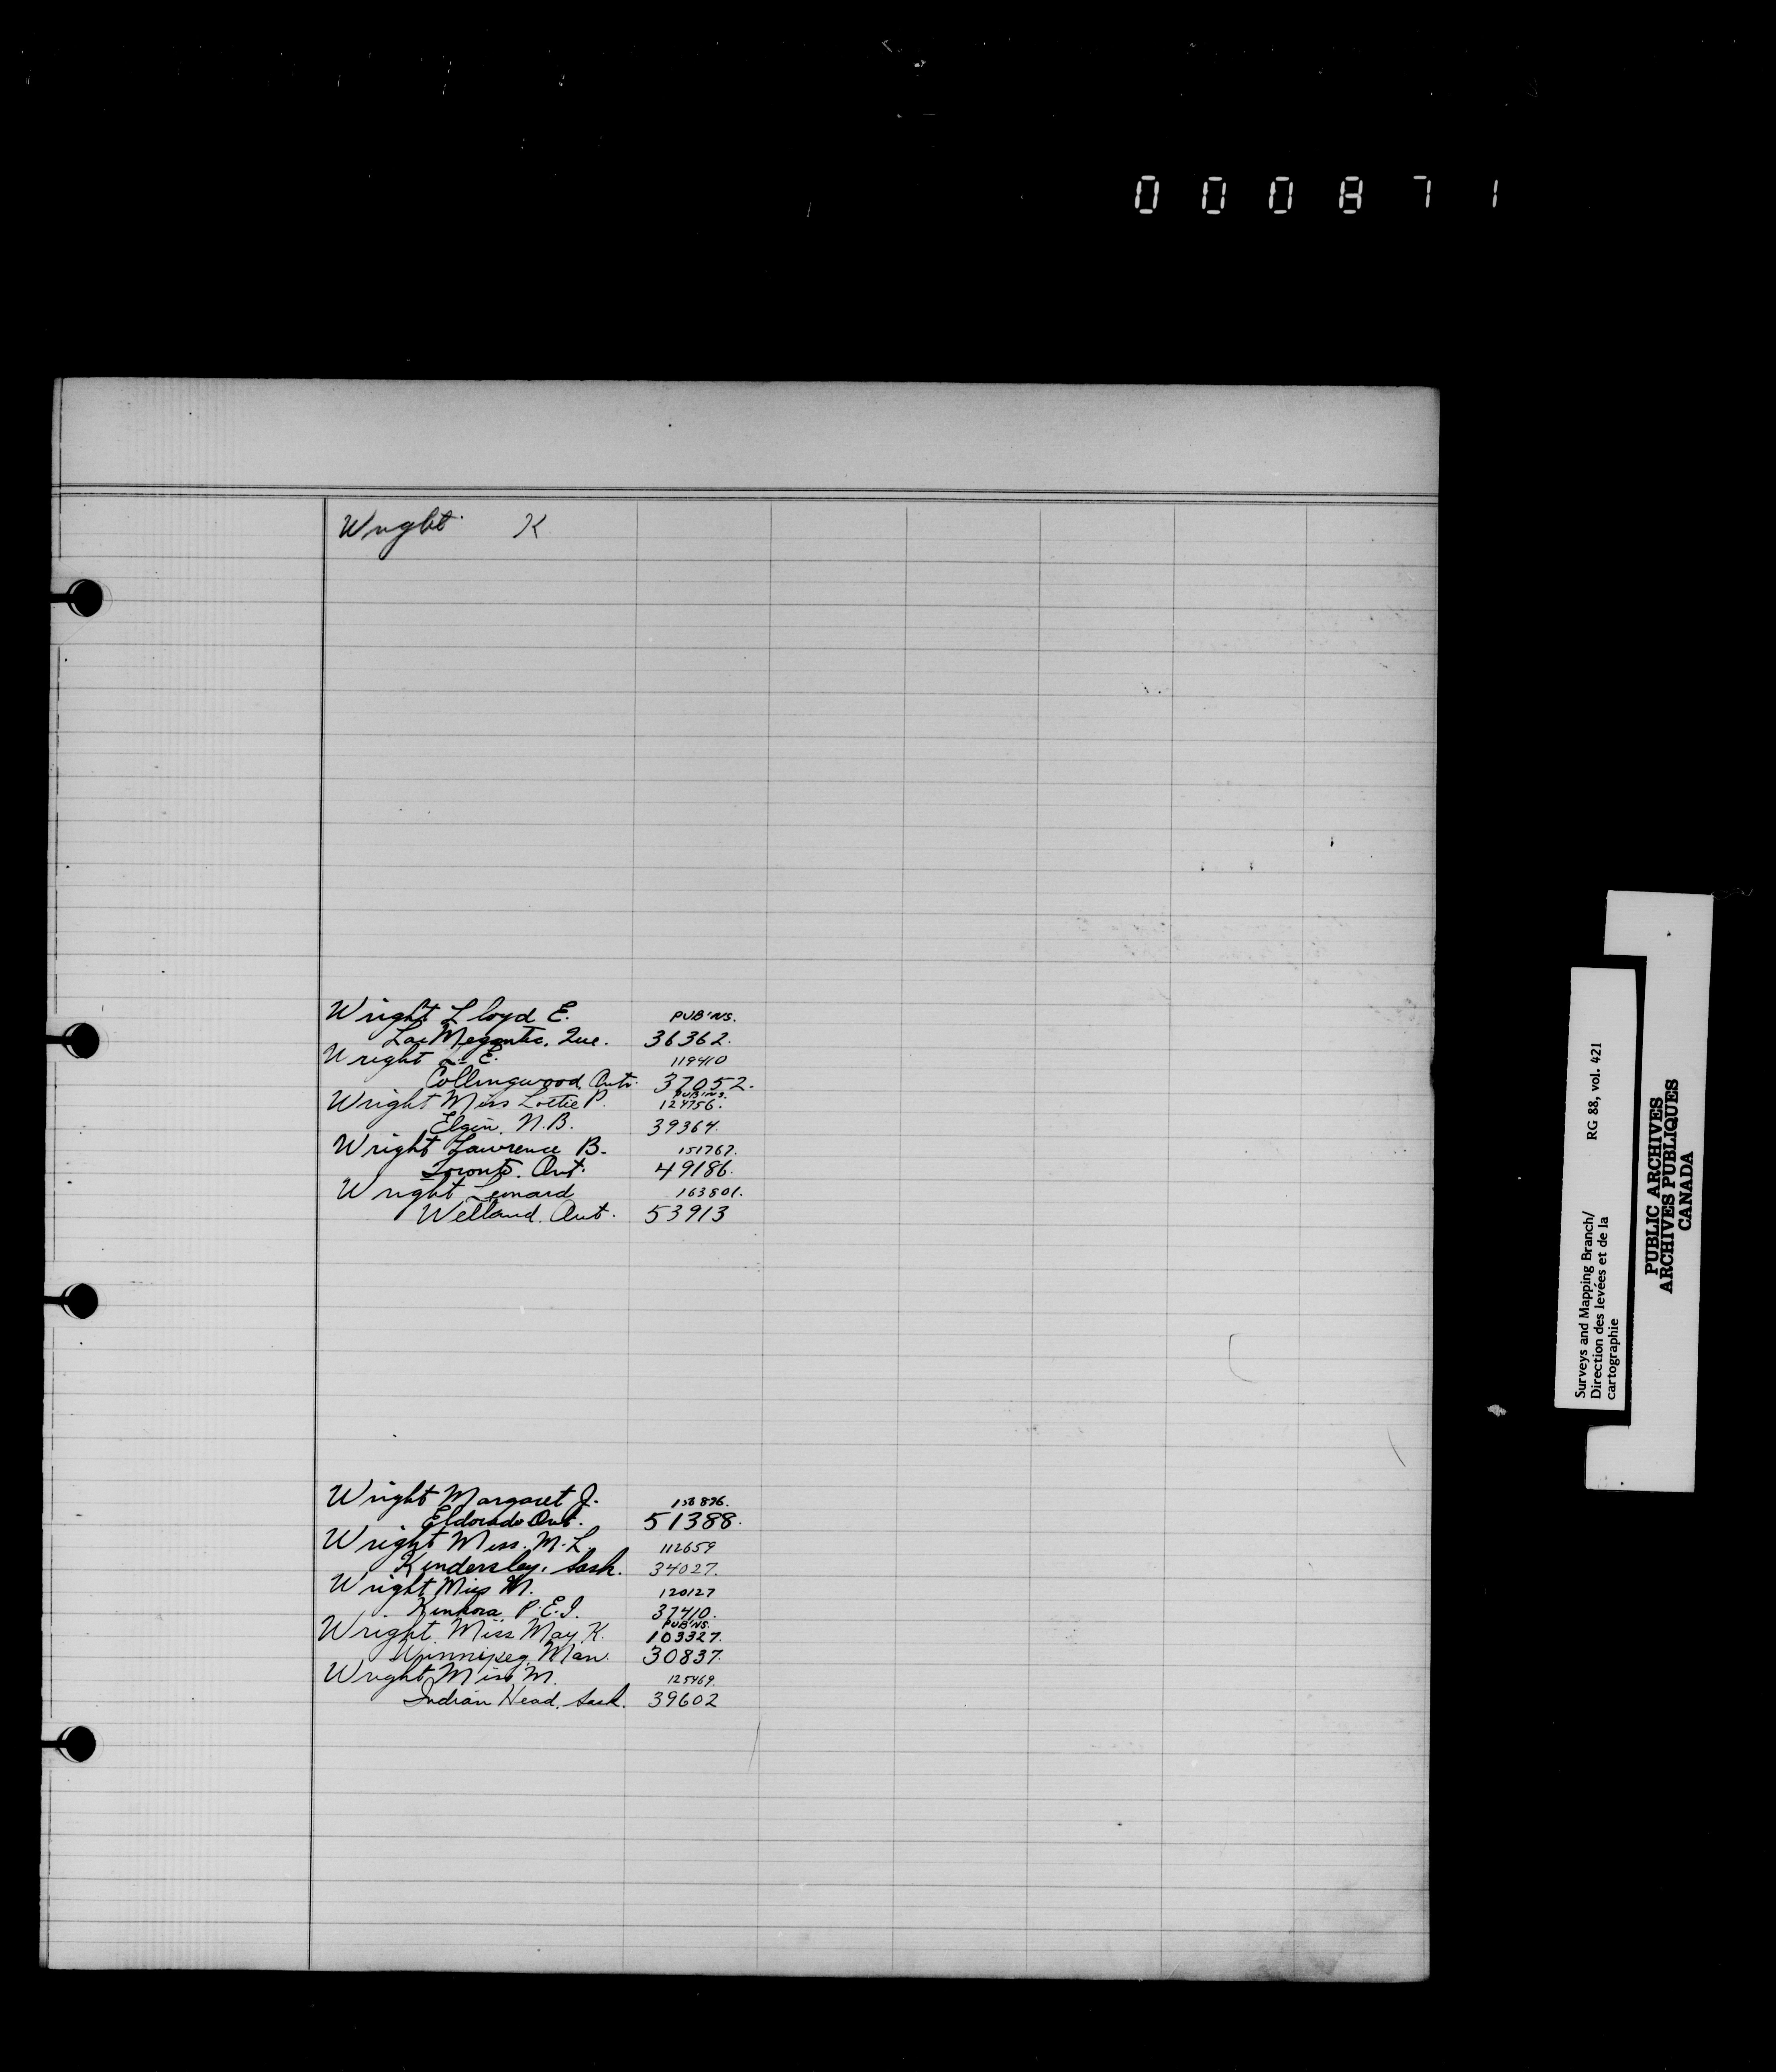 000871
Wright K
Wright Lloyd E. PUB'NS.
Lac Megantic, Que. 36362.
Wright L. E. 119410
Collingwood, Ont. 37052.
PUB'NS.
Wright Miss Lottie P. 124756.
Elgin, N.B. 39364.
Wright Lawrence B. 151767.
Toronto. Ont. 49186.
Wright Lenard 163801.
Welland. Ont. 53913
Wright Margaret J. 158896.
Eldorado Ont. 51388.
Wright Miss. M. L. 112659
Kindersley, Sask. 34027.
Wright Miss M. 120127
Kinkora, P.E.I. 37410.
PUB'NS.
Wright Miss May K. 103327.
Winnipeg, Man. 30837.
Wright Miss M. 125469.
Indian Head, Sask. 39602
Surveys and Mapping Branch/ RG 88, vol. 421
Direction des levées et de la
cartographie
PUBLIC ARCHIVES
ARCHIVES PUBLIQUES
CANADA